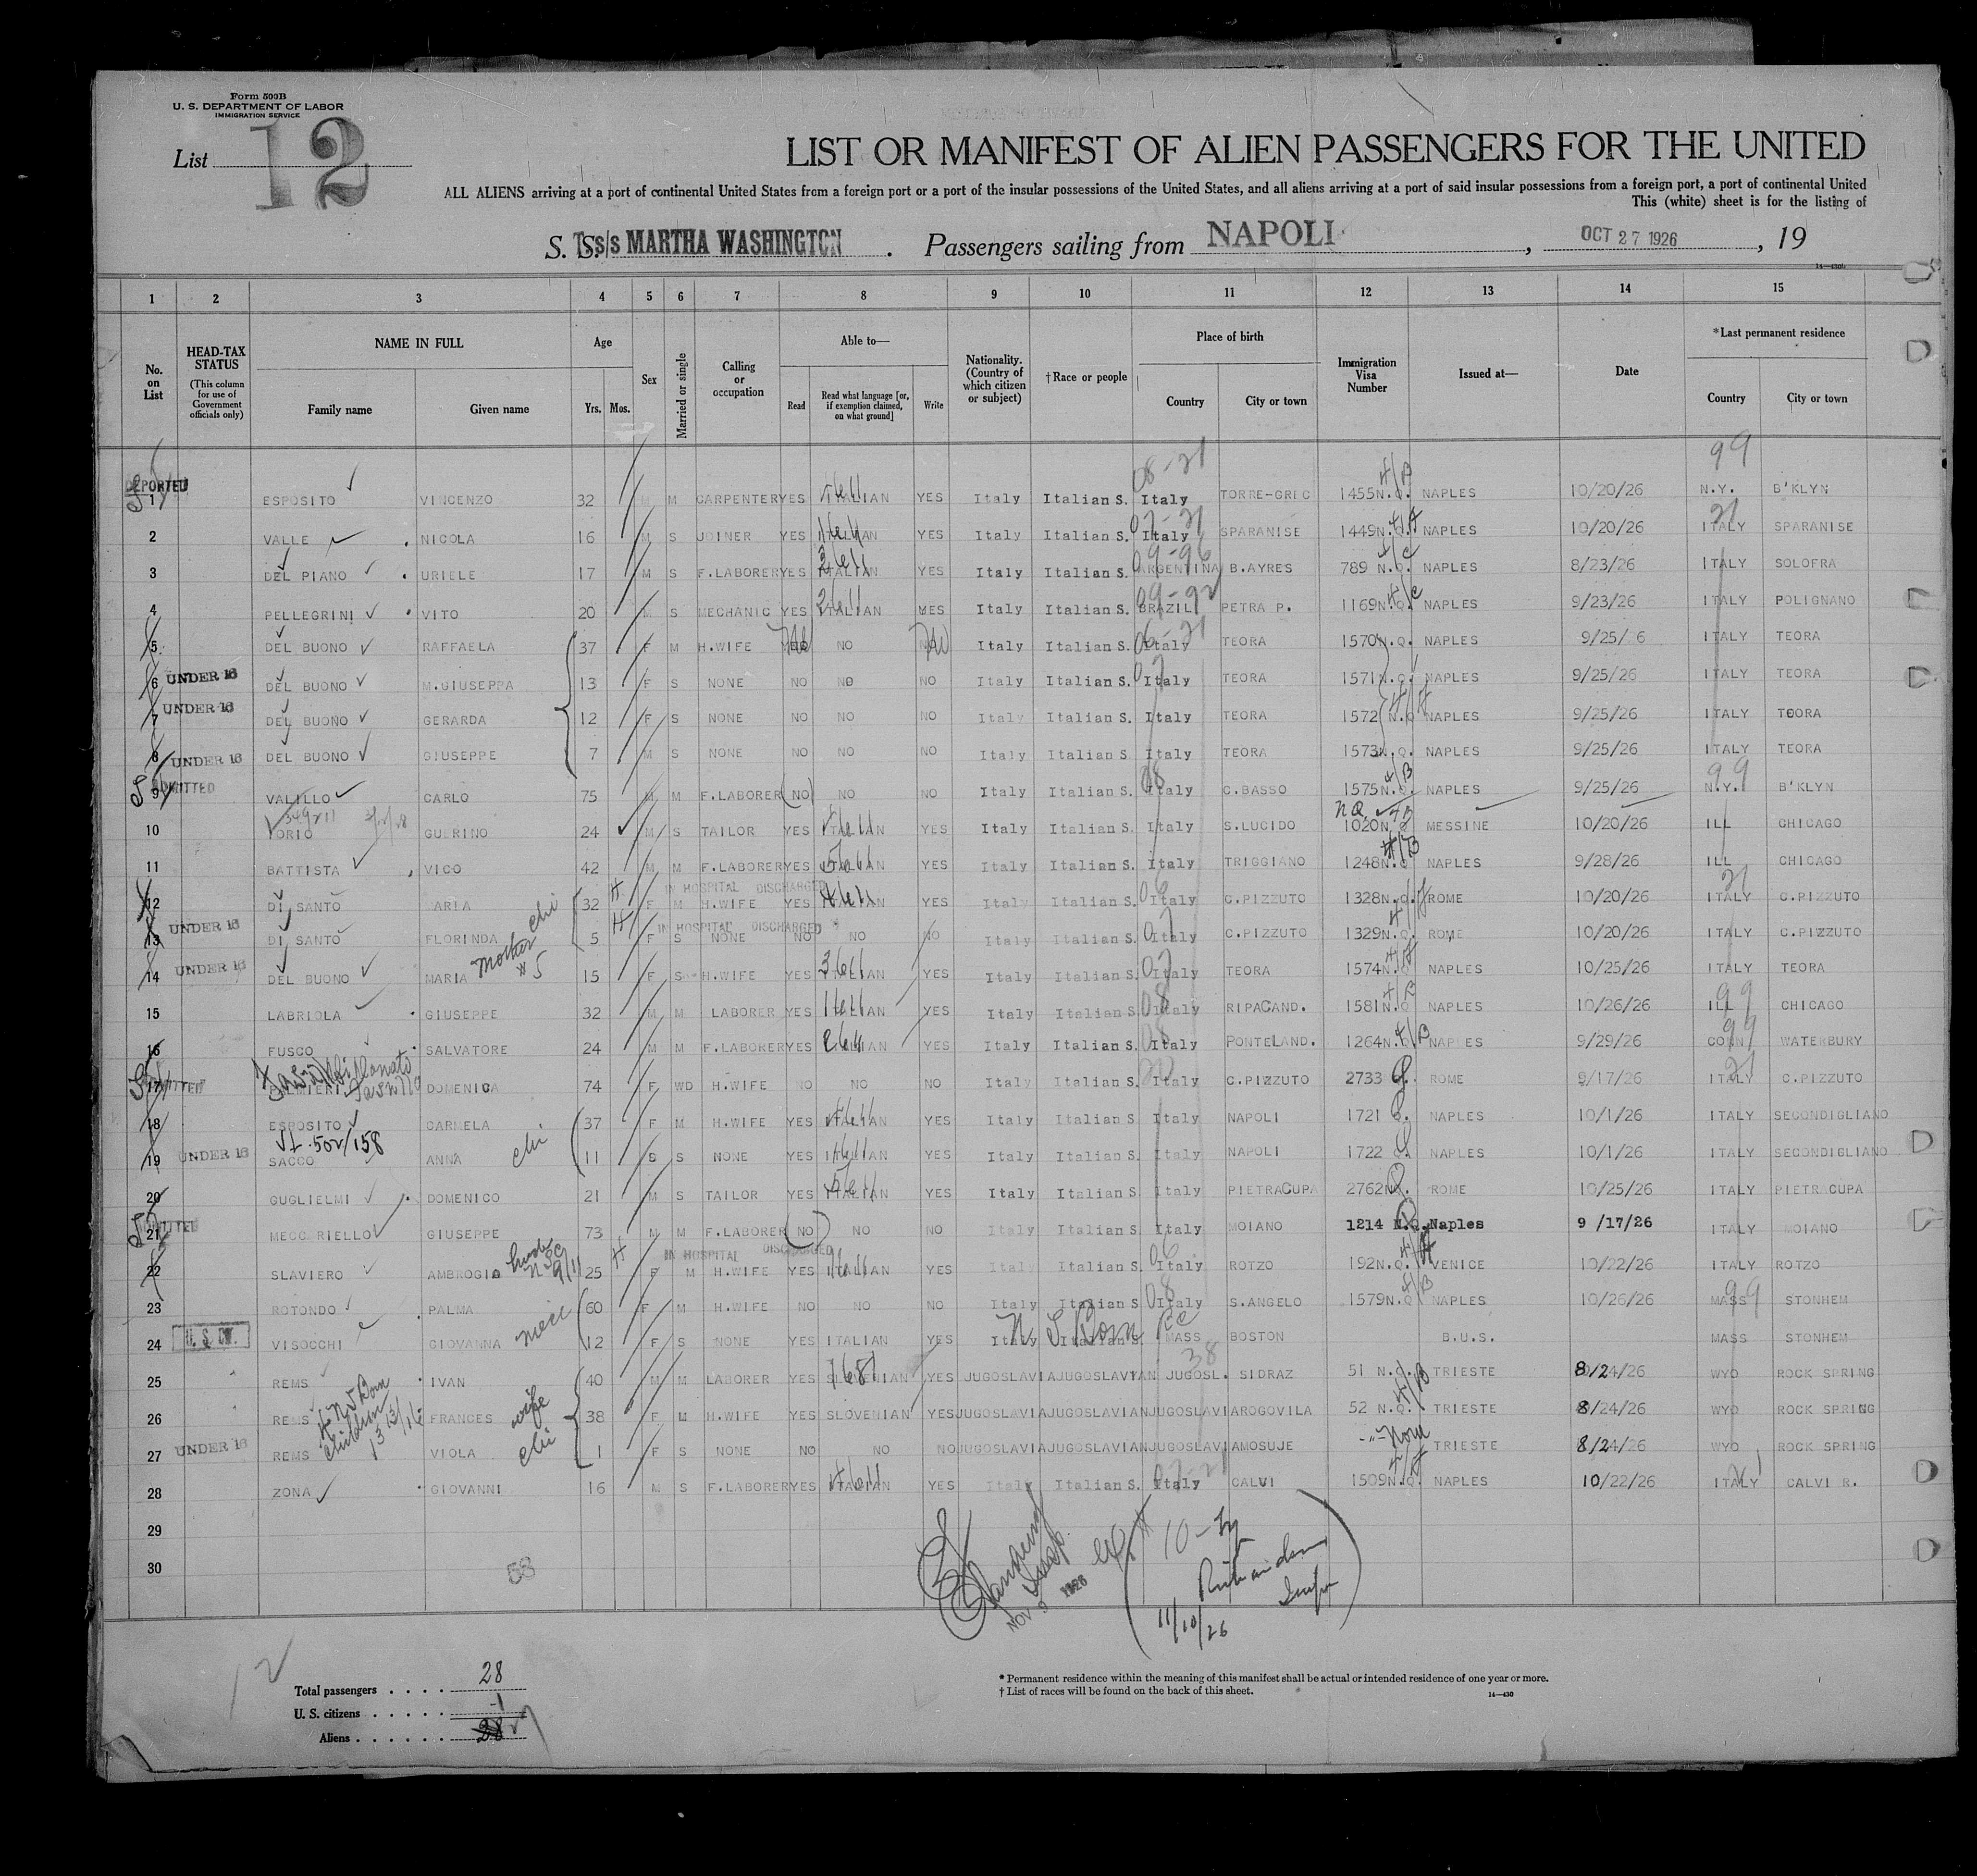 Form 500B
U. S. DEPARTMENT OF LABOR
IMMIGRATION SERVICE
List 12
LIST OR MANIFEST OF ALIEN PASSENGERS FOR THE UNITED
ALL ALIENS arriving at a port of continental United States from a foreign port or a port of the insular possessions of the United States, and all aliens arriving at a port of said insular possessions from a foreign port, a port of continental United
This (white) sheet is for the listing of
S. S. T.s/s MARTHA WASHINGTON . Passengers sailing from NAPOLI , OCT 27 1926 , 19
1 2 3 4 5 6 7 8 9 10 11 12 13 14 15
No. on List HEAD-TAX STATUS (This column for use of Government officials only) NAME IN FULL Family name Given name Age Yrs. Mos. Sex Married or single Calling or occupation Able to— Read Read what language [or, if exemption claimed, on what ground] Write Nationality. (Country of which citizen or subject) †Race or people Place of birth Country City or town Immigration Visa Number Issued at— Date *Last permanent residence Country City or town
08-21 99
DEPORTED
1 ESPOSITO VINCENZO 32 M M CARPENTER YES ITALIAN YES Italy Italian S. Italy TORRE-GREC 1455 N.Q. NAPLES 10/20/26 N.Y. B'KLYN
2 VALLE NICOLA 16 M S JOINER YES ITALIAN YES Italy Italian S. Italy SPARANISE 1449 N.Q. NAPLES 10/20/26 ITALY SPARANISE
3 DEL PIANO URIELE 17 M S F.LABORER YES ITALIAN YES Italy Italian S. ARGENTINA B.AYRES 789 N.Q. NAPLES 8/23/26 ITALY SOLOFRA
4 PELLEGRINI VITO 20 M S MECHANIC YES ITALIAN YES Italy Italian S. BRAZIL PETRA P. 1169 N.Q. NAPLES 9/23/26 ITALY POLIGNANO
5 DEL BUONO RAFFAELA 37 F M H.WIFE NO Italy Italian S. Italy TEORA 1570 N.Q. NAPLES 9/25/ 6 ITALY TEORA
6 UNDER 16 DEL BUONO M.GIUSEPPA 13 F S NONE NO NO NO Italy Italian S. Italy TEORA 1571 N.Q. NAPLES 9/25/26 ITALY TEORA
7 UNDER 16 DEL BUONO GERARDA 12 F S NONE NO NO NO Italy Italian S. Italy TEORA 1572 N.Q. NAPLES 9/25/26 ITALY TEORA
8 UNDER 16 DEL BUONO GIUSEPPE 7 M S NONE NO NO NO Italy Italian S. Italy TEORA 1573 N.Q. NAPLES 9/25/26 ITALY TEORA
9 ADMITTED VALILLO CARLO 75 M M F.LABORER (NO) NO NO Italy Italian S. Italy C.BASSO 1575 N.Q. NAPLES 9/25/26 N.Y. B'KLYN
10 IORIO GUERINO 24 M S TAILOR YES ITALIAN YES Italy Italian S. Italy S.LUCIDO 1020 N.Q. MESSINE 10/20/26 ILL CHICAGO
11 BATTISTA VICO 42 M M F.LABORER YES ITALIAN YES Italy Italian S. Italy TRIGGIANO 1248 N.Q. NAPLES 9/28/26 ILL CHICAGO
IN HOSPITAL DISCHARGED
12 DI SANTO ARIA 32 F M H.WIFE YES ITALIAN YES Italy Italian S. Italy C.PIZZUTO 1328 N.Q. ROME 10/20/26 ITALY C.PIZZUTO
IN HOSPITAL DISCHARGED
13 UNDER 16 DI SANTO FLORINDA chi 5 F S NONE NO NO NO Italy Italian S. Italy C.PIZZUTO 1329 N.Q. ROME 10/20/26 ITALY C.PIZZUTO
14 UNDER 16 DEL BUONO MARIA mother #5 15 F S H.WIFE YES ITALIAN YES Italy Italian S. Italy TEORA 1574 N.Q. NAPLES 10/25/26 ITALY TEORA
15 LABRIOLA GIUSEPPE 32 M M LABORER YES ITALIAN YES Italy Italian S. Italy RIPACAND. 1581 N.Q. NAPLES 10/26/26 ILL CHICAGO
16 FUSCO SALVATORE 24 M M F.LABORER YES ITALIAN YES Italy Italian S. Italy PONTELAND. 1264 N.Q. NAPLES 9/29/26 CONN WATERBURY
17 ADMITTED PALMIERI DOMENICA 74 F WD H.WIFE NO NO NO Italy Italian S. Italy C.PIZZUTO 2733 Q. ROME 9/17/26 ITALY C.PIZZUTO
18 ESPOSITO CARMELA 37 F M H.WIFE YES ITALIAN YES Italy Italian S. Italy NAPOLI 1721 Q. NAPLES 10/1/26 ITALY SECONDIGLIANO
19 UNDER 16 SACCO ANNA chi 11 S NONE YES ITALIAN YES Italy Italian S. Italy NAPOLI 1722 NAPLES 10/1/26 ITALY SECONDIGLIANO
20 GUGLIELMI DOMENICO 21 M S TAILOR YES ITALIAN YES Italy Italian S. Italy PIETRACUPA 2762 ROME 10/25/26 ITALY PIETRACUPA
21 ADMITTED MECCARIELLO GIUSEPPE 73 M M F.LABORER (NO) NO NO Italy Italian S. Italy MOIANO 1214 N.Q. Naples 9 /17/26 ITALY MOIANO
IN HOSPITAL DISCHARGED
22 SLAVIERO AMBROGIA 25 F M H.WIFE YES ITALIAN YES Italy Italian S. Italy ROTZO 192 N.Q. VENICE 10/22/26 ITALY ROTZO
23 ROTONDO PALMA 60 F M H.WIFE NO NO NO Italy Italian S. Italy S.ANGELO 1579 N.Q. NAPLES 10/26/26 MASS STONHEM
24 VISOCCHI GIOVANNA niece 12 F S NONE YES ITALIAN YES Italy Italian S. MASS BOSTON B.U.S. MASS STONHEM
25 REMS IVAN 40 M M LABORER YES SLOVENIAN YES JUGOSLAVIA JUGOSLAVIAN JUGOSL. SIDRAZ 51 N.Q. TRIESTE 8/24/26 WYO ROCK SPRING
26 REMS FRANCES wife 38 F M H.WIFE YES SLOVENIAN YES JUGOSLAVIA JUGOSLAVIAN JUGOSLAVIA ROGOVILA 52 N.Q. TRIESTE 8/24/26 WYO ROCK SPRING
27 UNDER 16 REMS VIOLA chi 1 F S NONE NO NO NO JUGOSLAVIA JUGOSLAVIAN JUGOSLAVIA MOSUJE -"- None TRIESTE 8/24/26 WYO ROCK SPRING
28 ZONA GIOVANNI 16 M S F.LABORER YES ITALIAN YES Italy Italian S. Italy CALVI 1509 N.Q. NAPLES 10/22/26 ITALY CALVI R.
29
30
58
NOV 9 1926
11/10/26
12
Total passengers . . . . 28
U. S. citizens . . . . . 1
Aliens . . . . . . 28
* Permanent residence within the meaning of this manifest shall be actual or intended residence of one year or more.
† List of races will be found on the back of this sheet.
14—430